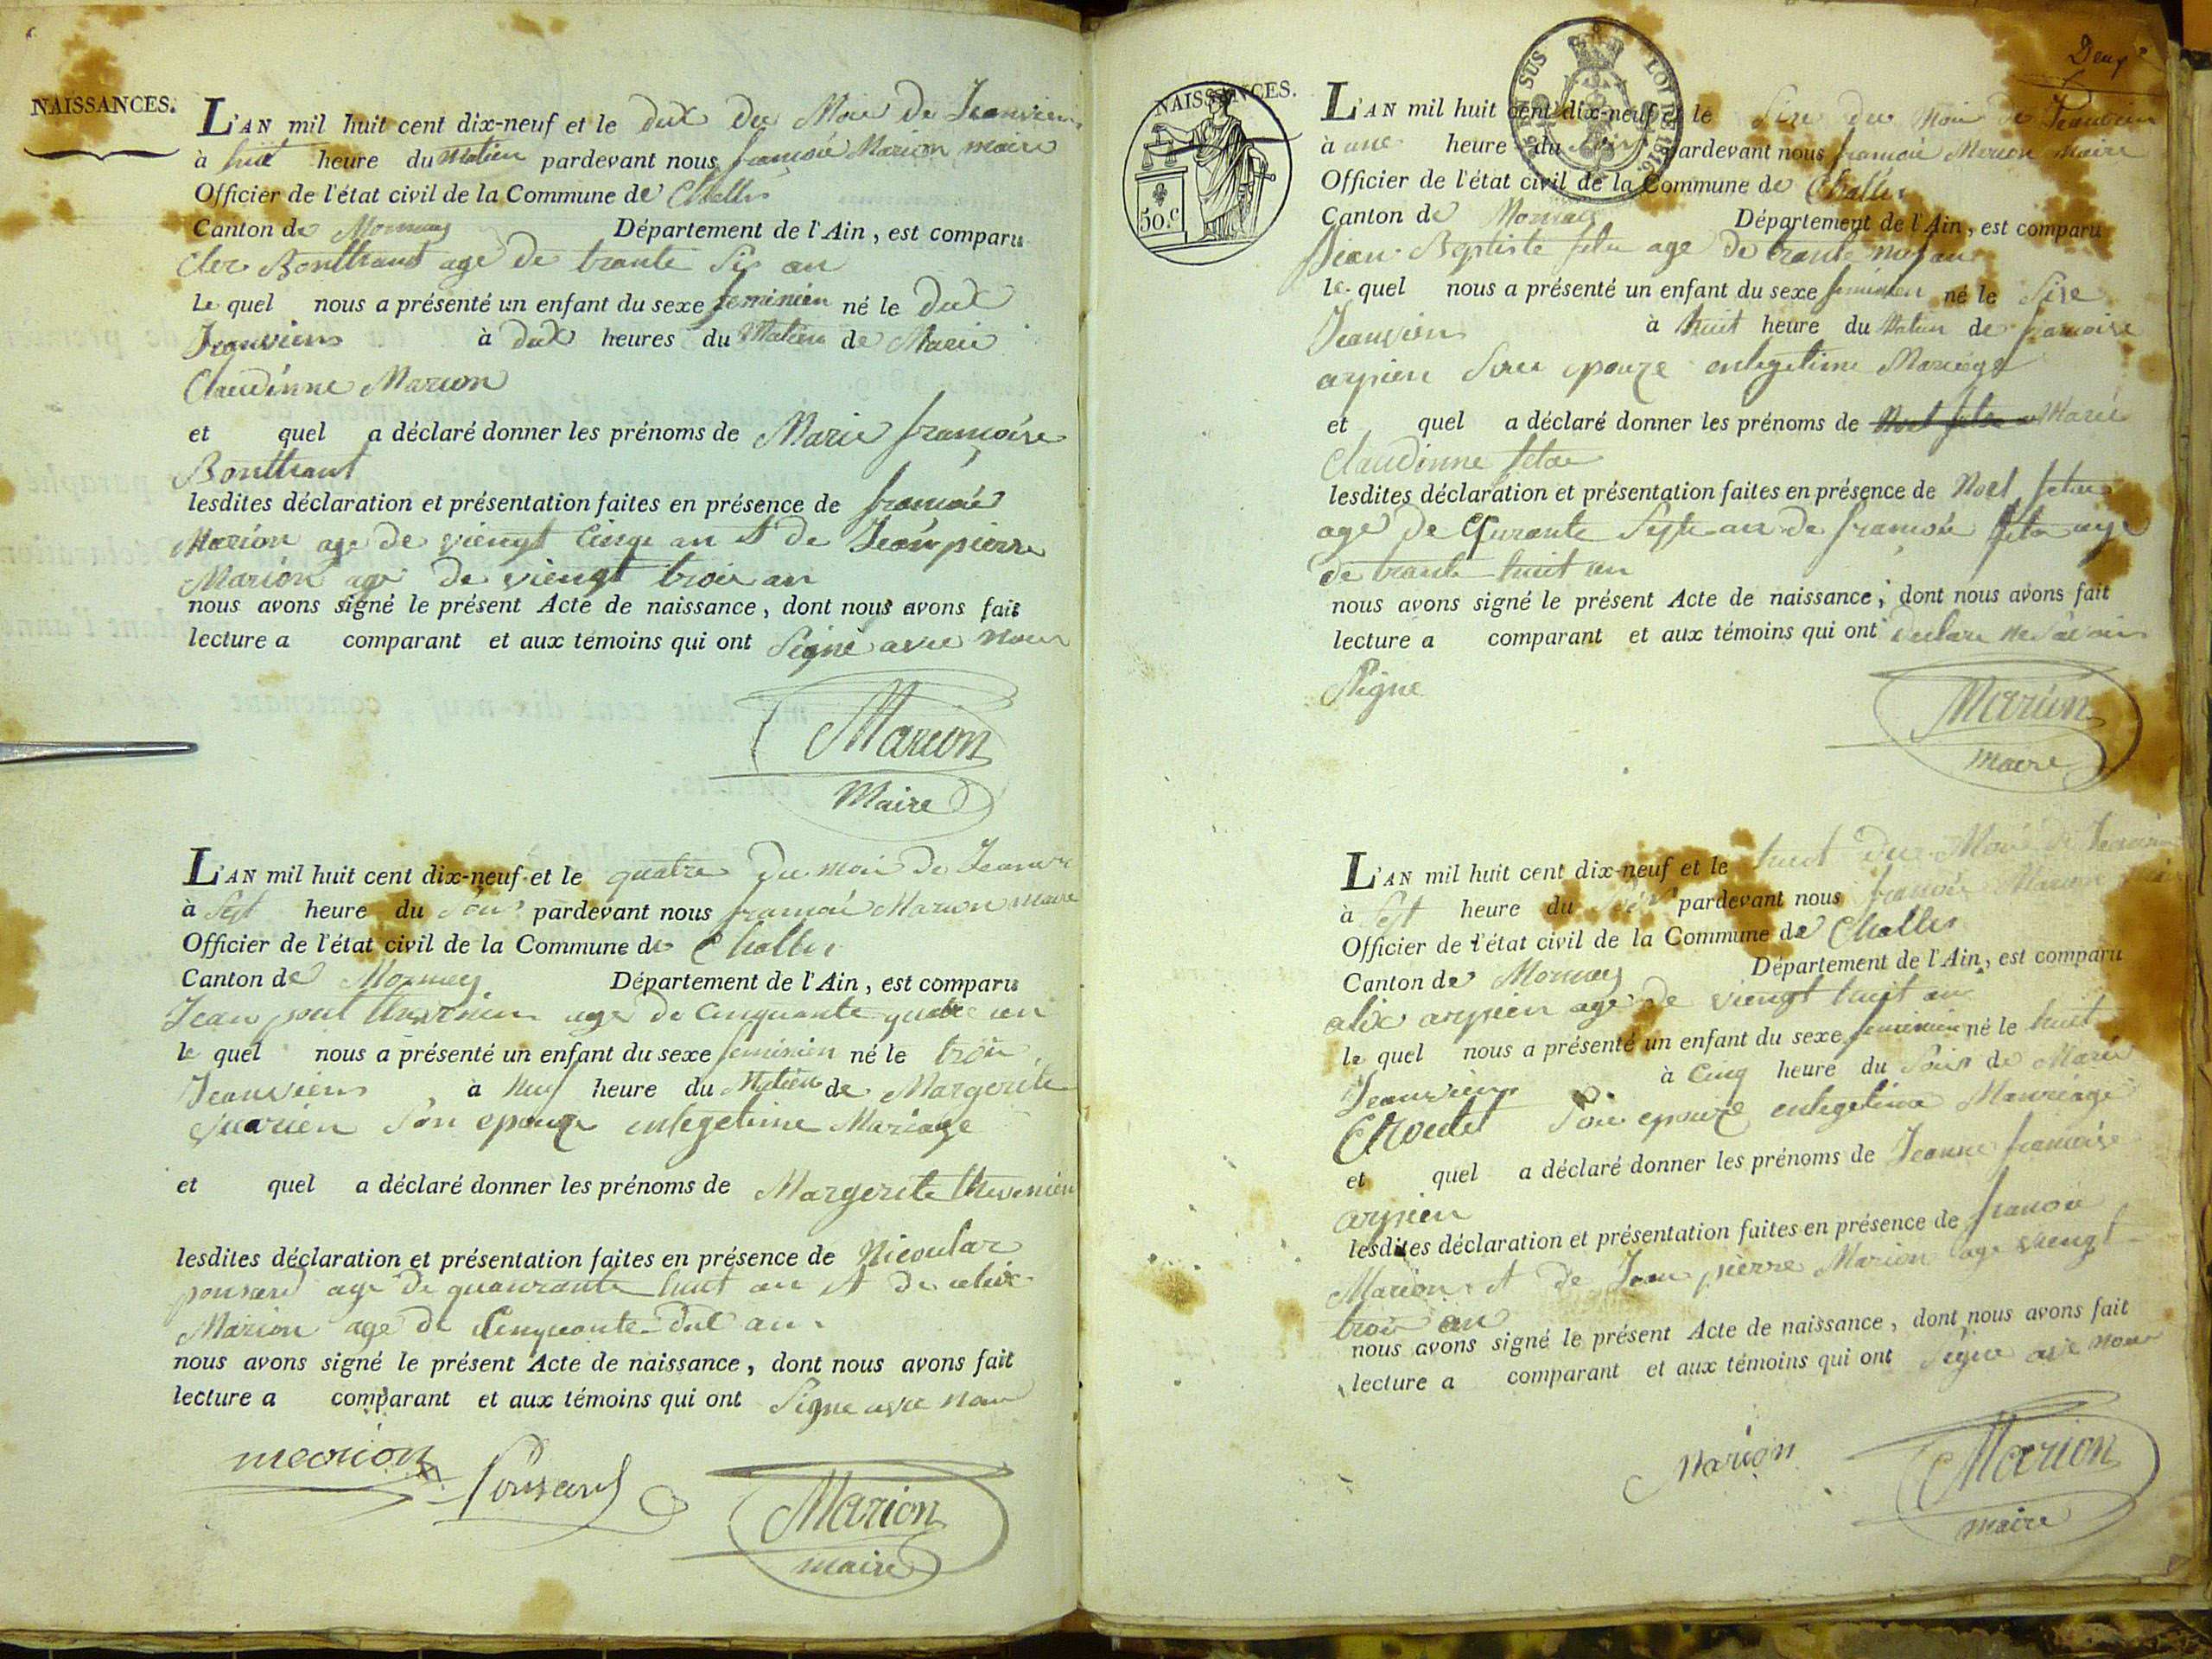 NAISSANCES.
L'AN mil huit cent dix-neuf et le dux du Moie de Jeanviens
à huit heure du Matien pardevant nous francoié Marion maire
Officier de l'état civil de la Commune de Challes
Canton de Mornay Département de l'Ain, est comparu
Cler Bonthant age de trante six an
le quel nous a présenté un enfant du sexe feminien né le dux
Jeanviens à dux heures du Matien de Marie
Claudinne Marion
et quel a déclaré donner les prénoms de Marie françoise
Bonthant
lesdites déclaration et présentation faites en présence de francoié
Marion age de viengt Cinqe an & de Jean pierre
Marion age de viengt troie an
nous avons signé le présent Acte de naissance, dont nous avons fait
lecture a comparant et aux témoins qui ont Signé avec nous
Marion
Maire
L'AN mil huit cent dix-neuf et le quatre du moie de Jeanv
à Sept heure du Soir pardevant nous francoié Marion maire
Officier de l'état civil de la Commune de Challes
Canton de Mornay Département de l'Ain, est comparu
Jean poul thevenien age de Cinquante quatre an
le quel nous a présenté un enfant du sexe feminien né le troie
Jeanviens à Neuf heure du Matien de Margerite
Son epouze enlegetime Mariage
et quel a déclaré donner les prénoms de Margerite thevenien
lesdites déclaration et présentation faites en présence de Nicoular
ponsard age de quaurante huit an & de alix
Marion age de Cinquante dux an
nous avons signé le présent Acte de naissance, dont nous avons fait
lecture a comparant et aux témoins qui ont Signe avec nous
merion
Ponsard
Marion
maire
Deuxe
NAISSANCES.
50.C
LOI DE 1816.
L'AN mil huit cent dix-neuf et le Sixe du Moie de Jeanvien
à une heure du Soir pardevant nous francoié Marion Maire
Officier de l'état civil de la Commune de Challes
Canton de Mornay Département de l'Ain, est comparu
Jean Baptiste felon age de trante neuf an
le quel nous a présenté un enfant du sexe feminien né le Sixe
Jeanvien à huit heure du Matien de francoise
arpien Sone epouze enlegetime Mariage
et quel a déclaré donner les prénoms de Marie
Claudinne
lesdites déclaration et présentation faites en présence de Noel
age de qurante Septe an de francoié age
de trante huit an
nous avons signé le présent Acte de naissance, dont nous avons fait
lecture a comparant et aux témoins qui ont declare ne Savoir
Signe
Marion
maire
L'AN mil huit cent dix-neuf et le huit du Moie de Jeanvien
à Sept heure du Soir pardevant nous francoié Marion
Officier de l'état civil de la Commune de Challes
Canton de Mornay Département de l'Ain, est comparu
alix arpien age de viengt huit an
le quel nous a présenté un enfant du sexe feminien né le huit
Jeanviens à Cinq heure du Soir de Marie
Sone epouze enlegetime Mauriage
et quel a déclaré donner les prénoms de Jeanne francoise
arpien
lesdites déclaration et présentation faites en présence de francoié
Marion & de Jean pierre Marion age viengt
troie an
nous avons signé le présent Acte de naissance, dont nous avons fait
lecture a comparant et aux témoins qui ont Signe avec nous
Marion
Marion
maire